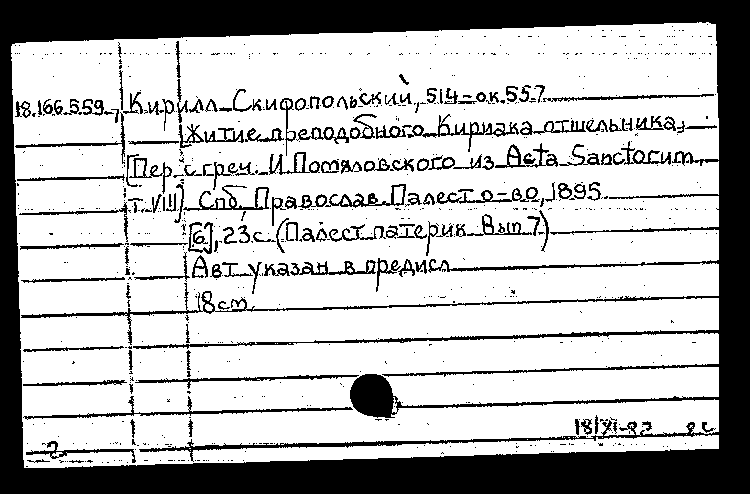 18.166.559, Кирилл Скифопольский, 514-ок.557
Житие преподобного Кириака отшельника;
[Пер. с греч. И. Помяловского из Acta Sanctorum,
т. VIII]. Спб, Православ. Палест о-во, 1895.
[6], 23с. (Палест. патерик Вып 7)
Авт указан в предисл
18 cm.
2 18/XI-